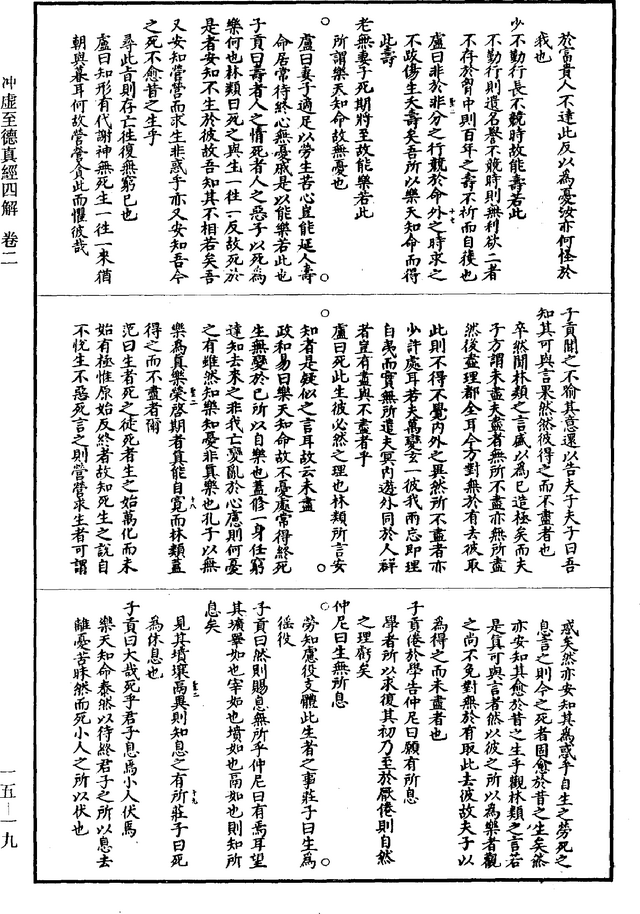 於富貴人不達此反以為憂汝亦何怪於
我也
少不勤行長不競時故能壽若此
不勤行則遺名譽不競時則無利欲二者
不存於胷中則百年之壽不祈而自獲也
盧曰非於非分之行競於命外之時求之
不跂傷生夭壽矣吾所以樂天知命而得
此壽
老無妻子死期將至故能樂若此
所謂樂天知命故無憂也
盧曰妻子適足以勞生苦心豈能延人壽
命居常待終心無憂戚是以能樂若此也
子貢曰壽者人之情死者人之惡子以死為
樂何也林類曰死之與生一往一反故死於
是者安知不生於彼故吾知其不相若矣吾
又安知營營而求生非惑乎亦又安知吾今
之死不愈昔之生乎
尋此言則存亡往復無窮已也
盧曰知形有代謝神無死生一往一來猶
朝與暮耳何故營營貪此而懼彼哉
子貢聞之不喻其意還以告夫子夫子曰吾
知其可與言果然然彼得之而不盡者也
卒然聞林類之言盛以為已造極矣而夫
子方謂未盡夫盡者無所不盡亦無所盡
然後盡理都全耳今方對無於有去彼取
此則不得不覺內外之異然所不盡者亦
少許處耳若夫萬變玄一彼我兩忘即理
自夷而實無所遣夫冥內遊外同於人群
者豈有盡與不盡者乎
盧曰死此生彼必然之理也林類所言安
知者是疑似之言耳故云未盡
政和易曰樂天知命故不憂處常得終死
生無變於己所以自樂也蓋修一身任窮
達知去來之非我亡變亂於心慮則何憂
之有雖然知樂知憂非真樂也孔子以無
樂為真樂榮啓期者真能自寬而林類蓋
得之而不盡者爾
范曰生者死之徒死者生之始萬化而未
始有極惟原始反終者故知死生之說自
不悅生不惡死言之則營營求生者可謂
惑矣然亦安知其為惑乎自生之勞死之
息言之則今之死者固愈於昔之生矣然
亦安知其愈於昔之生乎觀林類之言若
是真可與言者然以彼之所以為樂者觀
之尚不免對無於有取此去彼故夫子以
為得之而未盡者也
子貢倦於學告仲尼曰願有所息
學者所以求復其初乃至於厭倦則自然
之理虧矣
仲尼曰生無所息
勞知慮役支體此生者之事莊子曰生為
徭役
子貢曰然則賜息無所乎仲尼曰有焉耳望
其壙睪如也宰如也墳如也鬲如也則知所
息矣
見其墳壤鬲異則知息之有所莊子曰死
為休息也
子貢曰大哉死乎君子息焉小人伏焉
樂天知命泰然以待終君子之所以息去
離憂苦昧然而死小人之所以伏也
冲虛至德真經四解　卷二
一五—一九